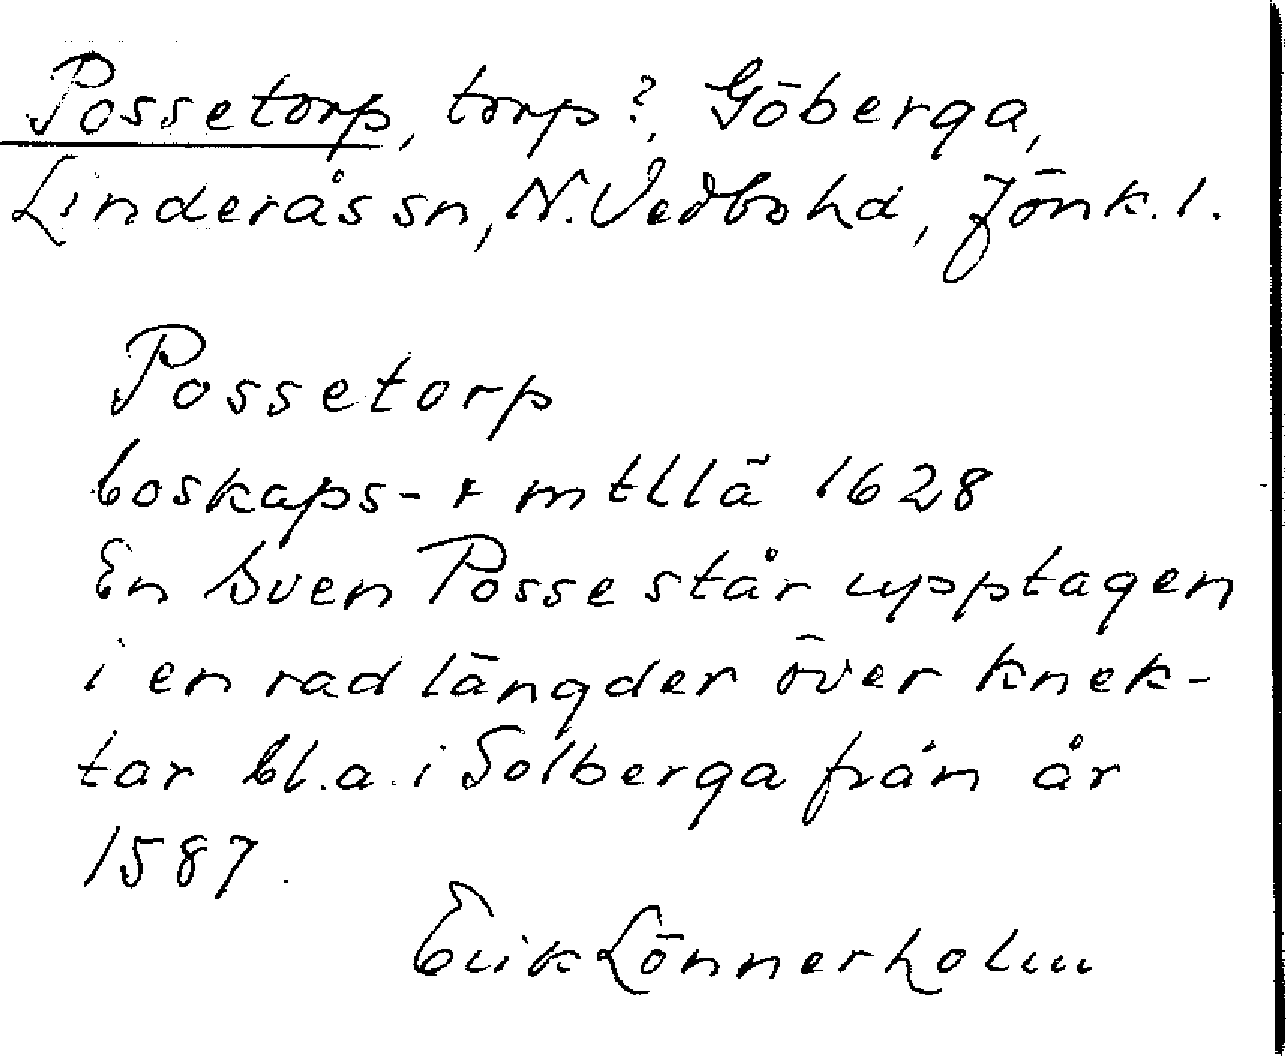 Possetorp, torp?, Göberga,
Linderås sn, N. Vedbo hd, Jönk. l.
Possetorp
boskaps- + mtllä 1628
En Sven Posse står upptagen
i en rad längder över knek-
tar bl.a. i Solberga från år
1587.
Erik Lönnerholm